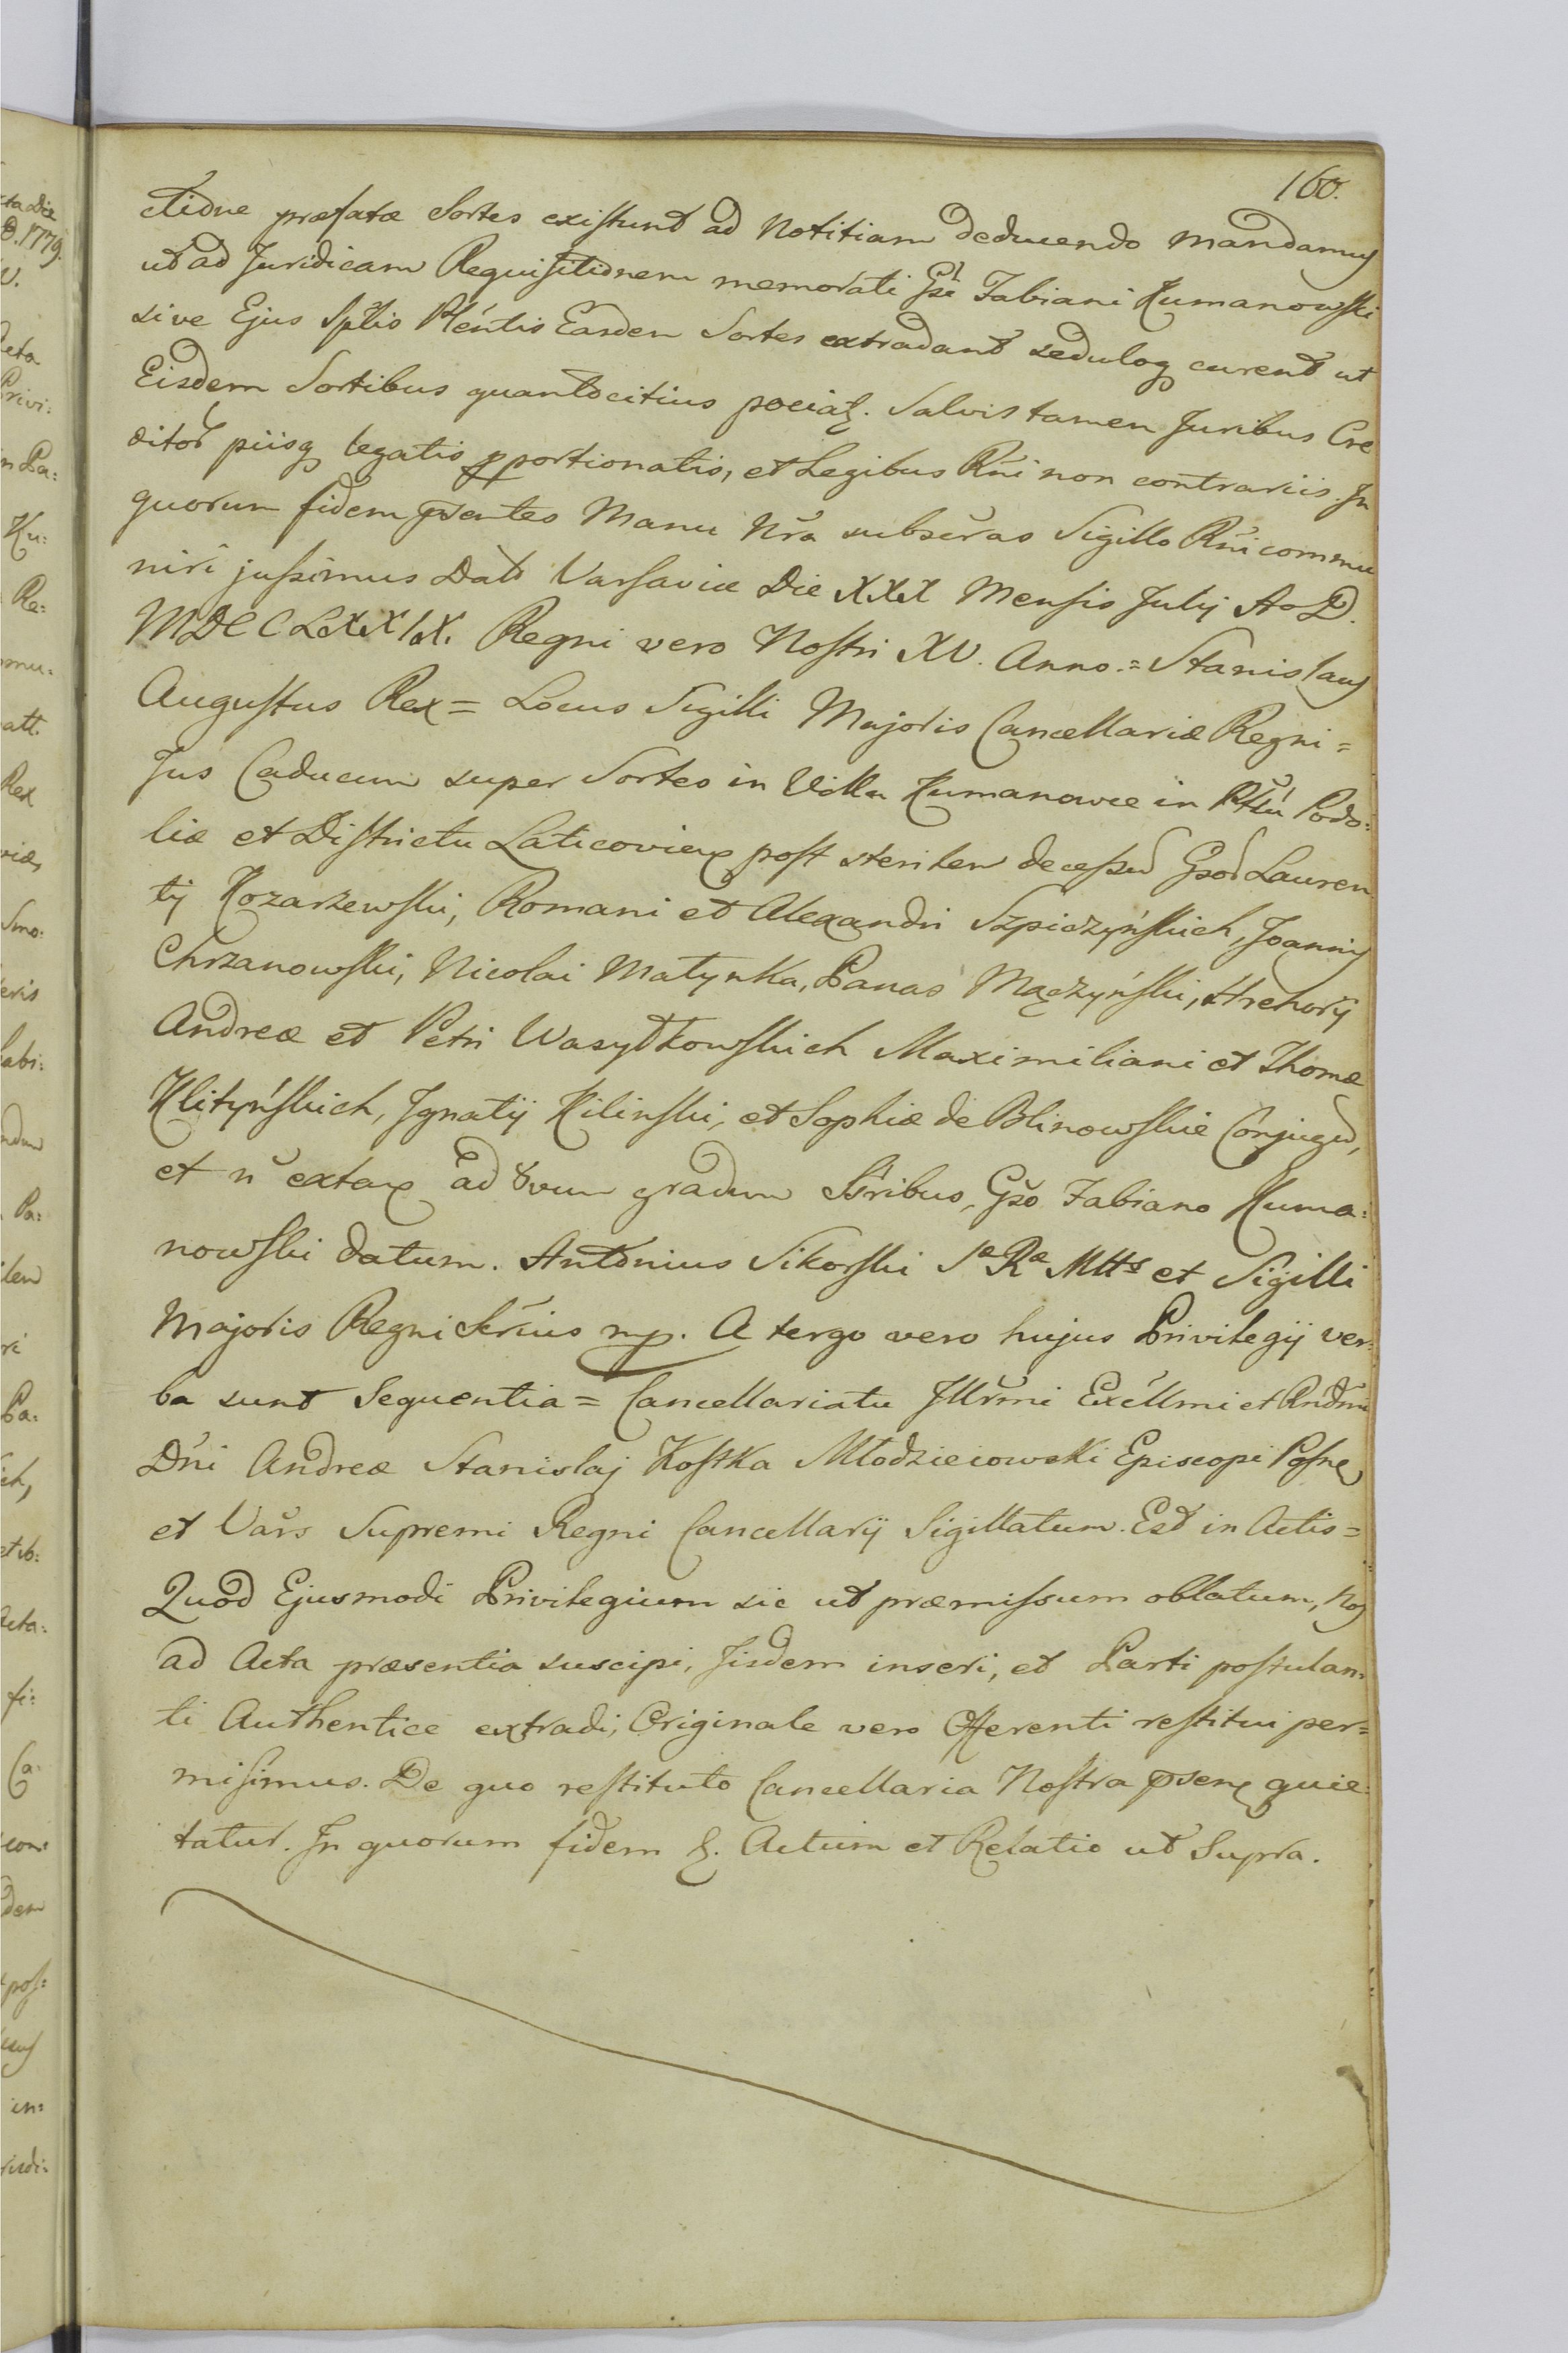 160.
ctione præfatæ Sortes existunt ad Notitiam deducendo mandamus
ut ad Juridicam Requisitionem memorati Gsi Fabiani Humanowski
sive Ejus Spltis Plentis Easdem Sortes extradant seduloq curent ut
Eisdem Sortibus quantocitius pociat. Salvis tamen Juribus Cre
ditor piisq legatis proportionatis, et Legibus Rni non contrariis. In
quorum fidem psentes Manu Nra subscras Sigillo Rni commu
niri jussimus Dat Varsaviæ Die XXX Mensis Julij A. D.
MDCCLXXIX. Regni vero Nostri XV. Anno. = Stanislaus
Augustus Rex = Locus Sigilli Majoris Cancellariæ Regni =
Jus Caducum super Sortes in Villa Humanowce in Pttu Podo:
liæ et Districtu Laticovien post sterilem decessu Gsor Lauren
tij Kozarzewski, Romani et Alexandri Szpiczyńskich, Joannis
Chrzanowski, Nicolai Matynka, Panas Mączyński, Hrehorij
Andreæ et Petri Wasyłkowskich Maximiliani et Thomæ
Hlityńskich, Ignatij Kilinski, et Sophiæ de Blinowskie Conjugu,
et n extan ad 8vum gradum Ssribus, Gso Fabiano Huma:
nowski datum. Antonius Sikorski Sæ Ræ Mtts et Sigilli
Majoris Regni Scrius mp. A tergo vero hujus Privilegij ver:
ba sunt Sequentia = Cancellariatu Illrmi Excllmi et Rndmi
Dni Andreæ Stanislaj Kostka Młodzieiowski Episcopi Posn
et Vars Supremi Regni Cancellarij Sigillatum. Est in Actis =
Quod Ejusmodi Privilegium sic ut præmissum oblatum, Nos
ad Acta præsentia suscipi, Iisdem inseri, et Parti postulan:
ti Authentice extradi, Originale vero Offerenti restitui per=
misimus. De quo restituto Cancellaria Nostra psen quie:
tatur. In quorum fidem &. Actum et Relatio ut Supra.